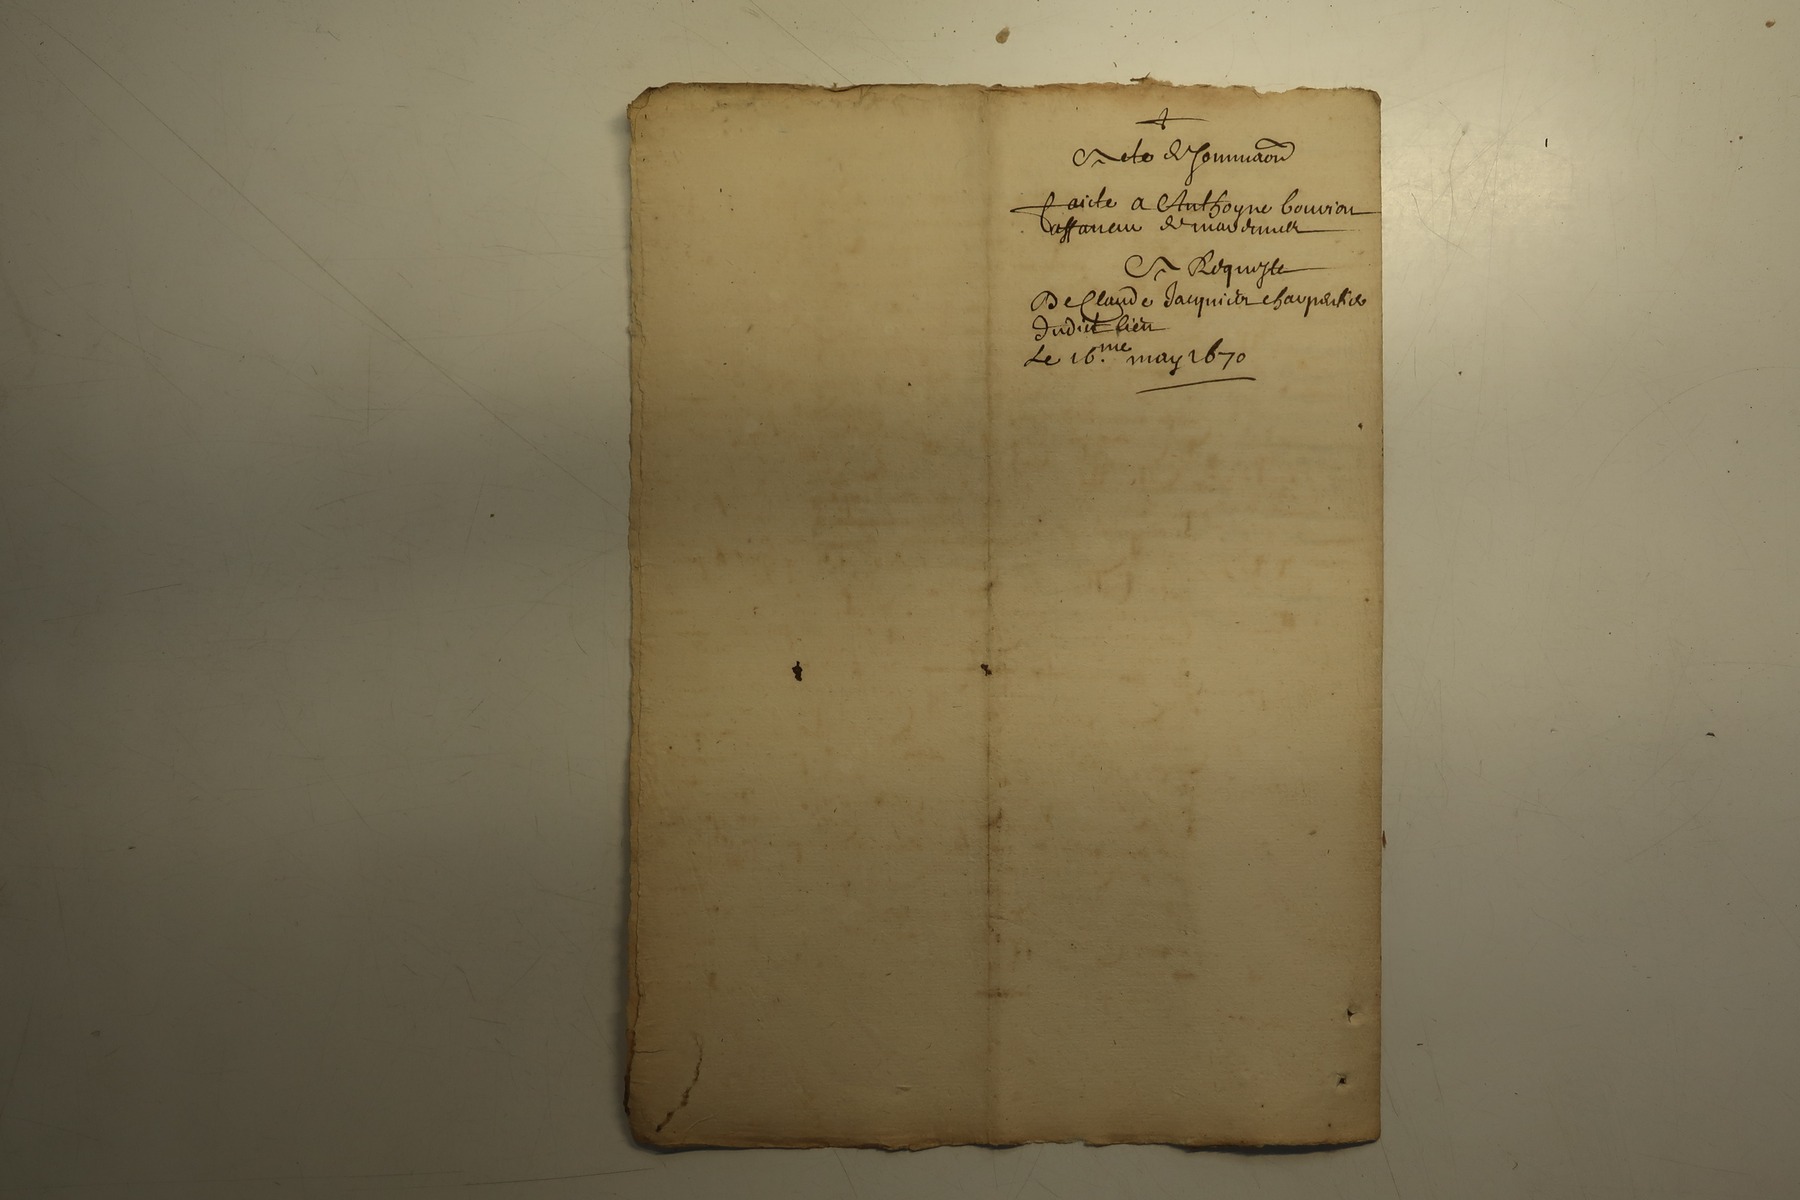 Acte de sommaõn
faicte a Anthoyne bouvion
affaneur de
A Requeste
De Claude Jacquier charpentier
dudict lieu
Le 16.me may 1670